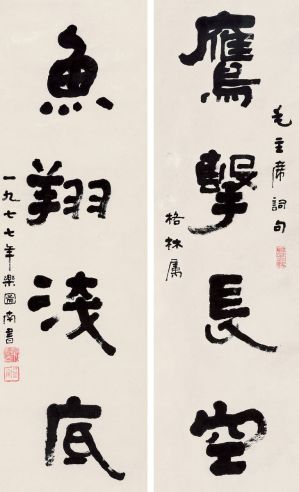 鷹擊長空
毛主席詞句
格林属
魚翔淺底
一九七七年樂圖南書